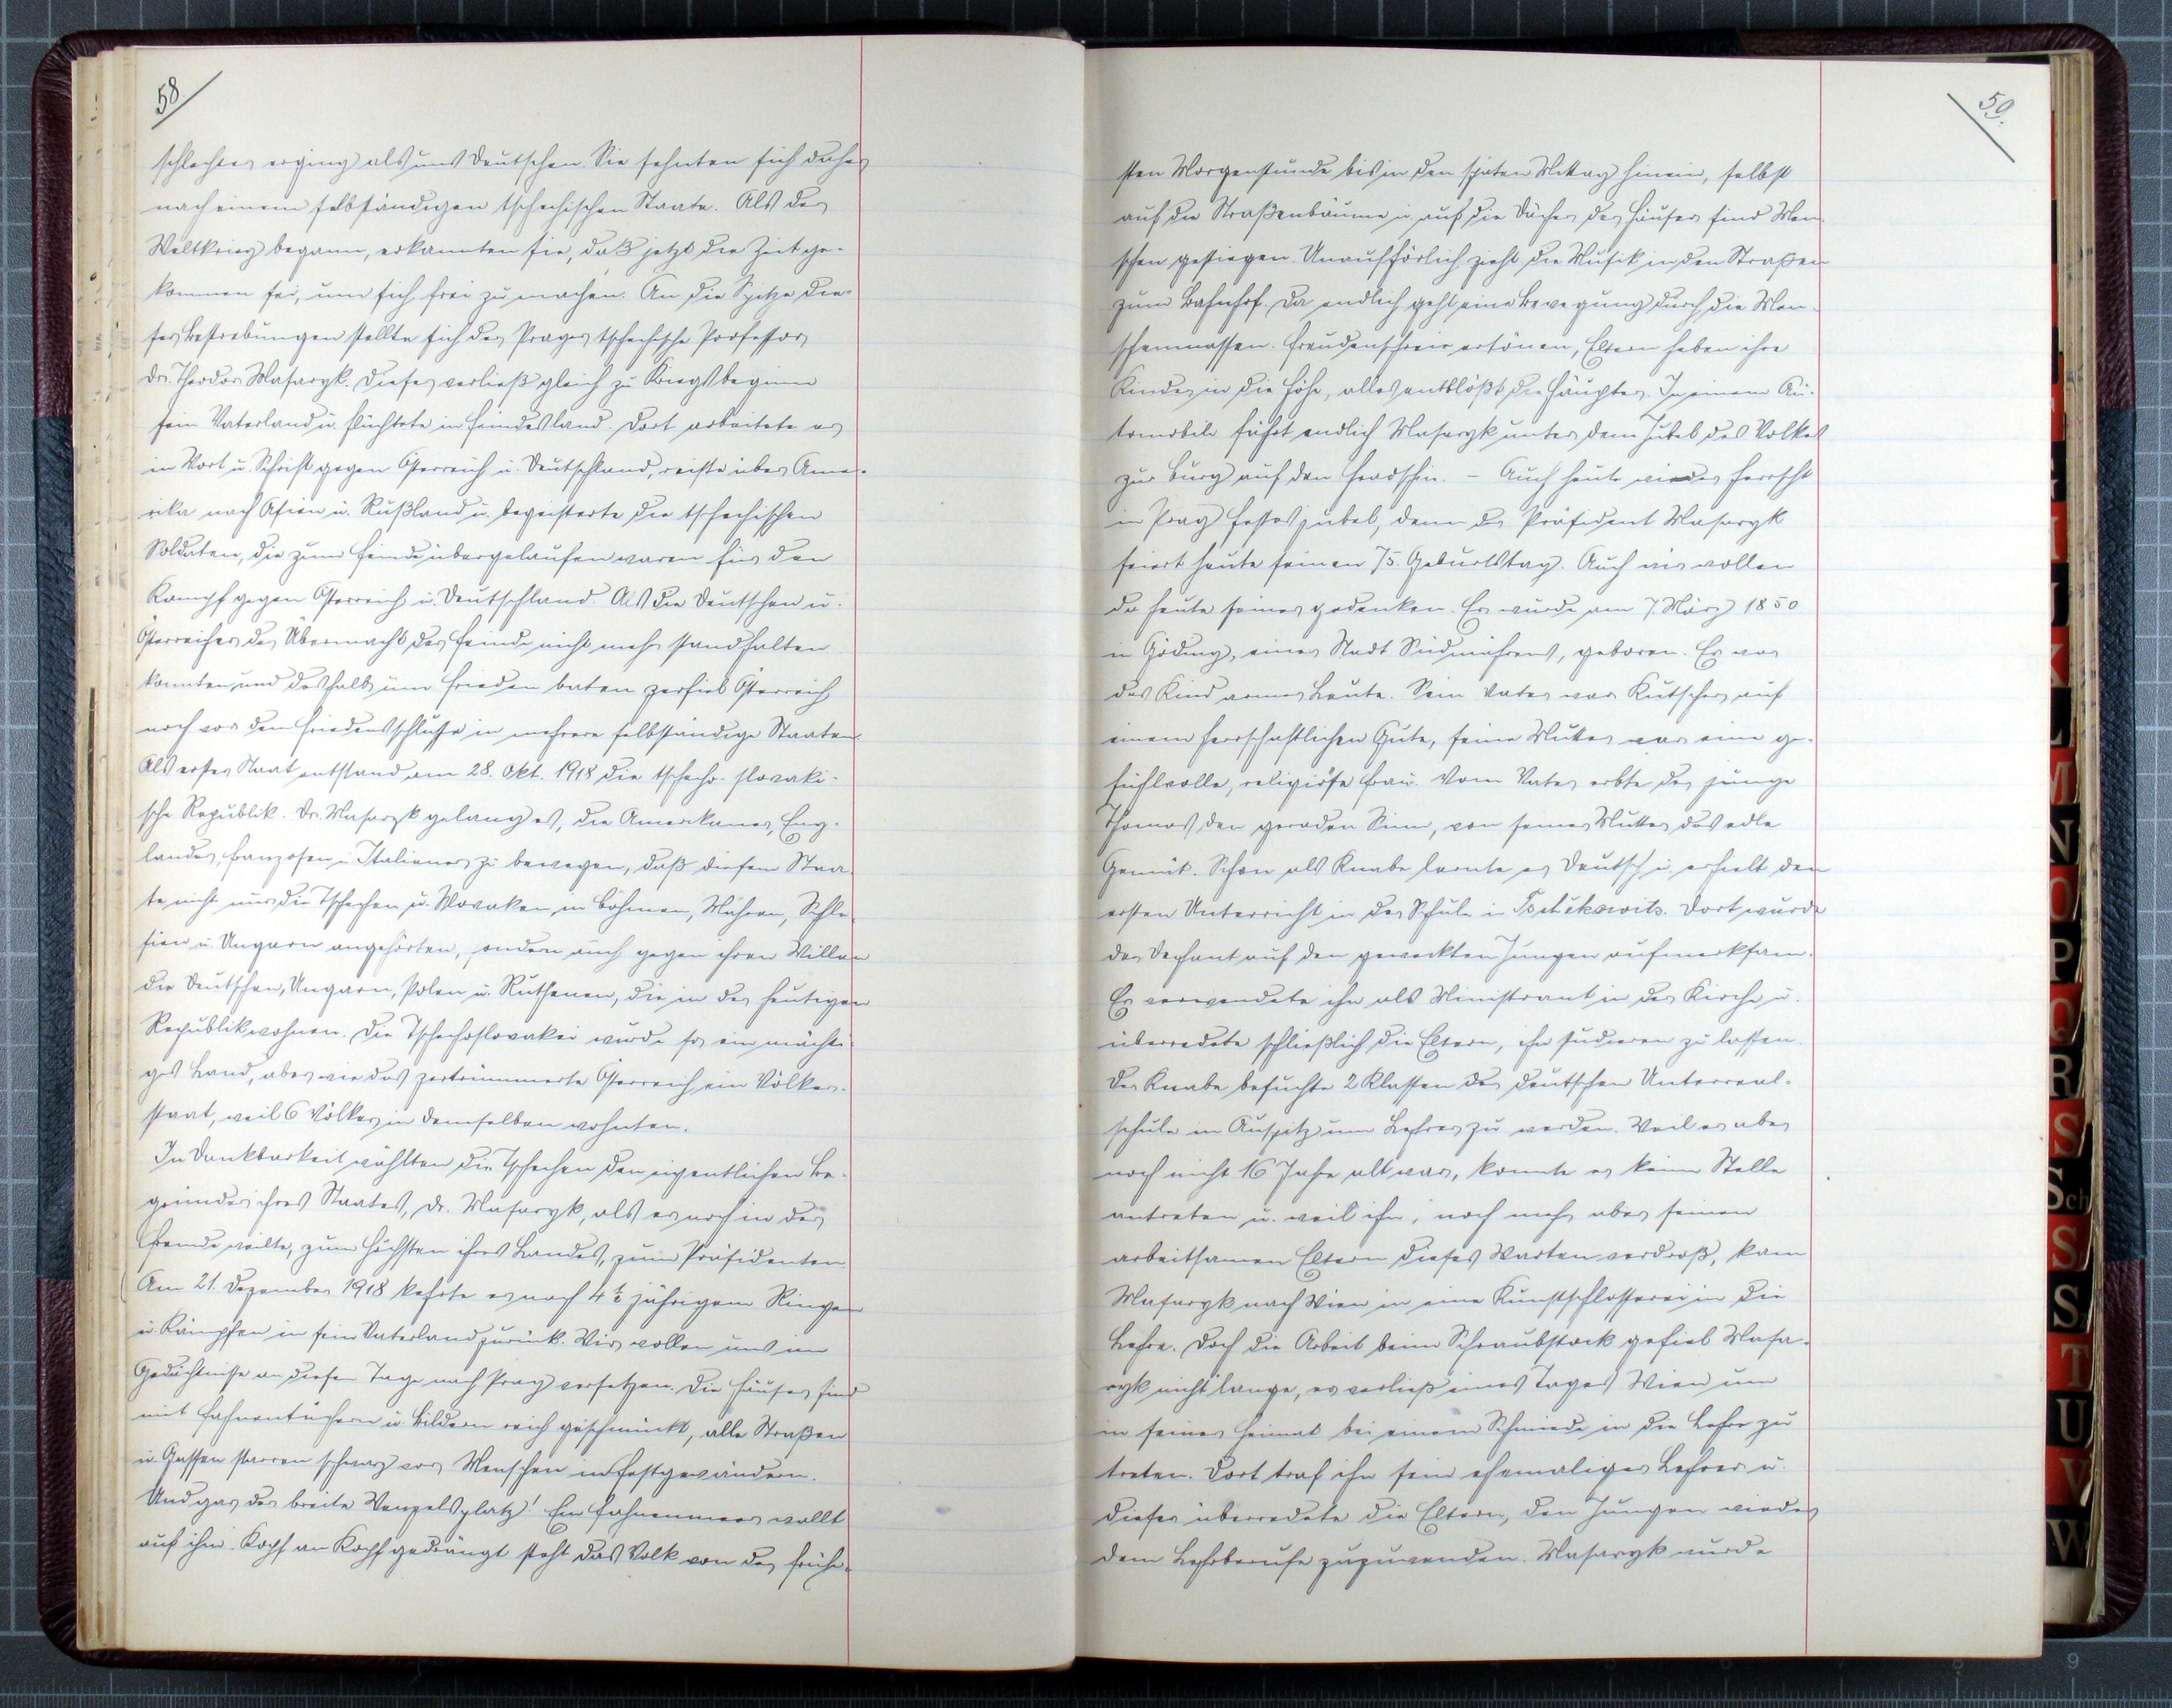 58.
schlechter erging als uns Deutschen. Sie sehnten sich daher
nach einem selbständigen tschechischen Staate. Als der
Weltkrieg begann, erkannten sie, daß jetzt die Zeit ge-
kommen sei, um sich frei zu machen. An die Spitze die-
ser Bestrebungen stellte sich der Prager tschechische Professor
Dr. Theodor Masaryk. Dieser verließ gleich zu Kriegsbeginn
sein Vaterland u. flüchtete in Feindesland. Dort arbeitete er
in Wort u. Schrift gegen Österreich u. Deutschland, reiste über Ame-
rika nach Asien u. Rußland u. begeisterte die tschechischen
Soldaten, die zum Feinde übergelaufen waren für den
Kampf gegen Österreich u. Deutschland. Als die Deutschen u.
Österreicher der Übermacht der Feinde nicht mehr standhalten
konnten und deshalb um Frieden baten zerfiel Österreich
noch vor dem Friedensschluße in mehrere selbständige Staaten.
Als erster Staat entstand am 28. Okt. 1918 die tschecho-slovaki-
sche Republik. Dr. Masaryk gelang es, die Amerikaner, Eng-
länder, Franzosen u. Italiener zu bewegen, daß diesem Staa-
te nicht nur die Tschechen u. Slovaken in Böhmen, Mähren, Schle-
sien u. Ungarn angehörten, sondern auch gegen ihren Willen
die Deutschen, Ungarn, Polen u. Ruthenen, die in der heutigen
Republik wohnen. Die Tschechoslovakei wurde so ein mächti-
ges Land, aber wie das zertrümmerte Österreich ein Völker-
staat, weil 6 Völker in demselben wohnten.
In Dankbarkeit wählten die Tschechen den eigentlichen Be-
gründer ihres Staates, Dr. Masaryk, als er noch in der
Fremde weilte, zum Höchsten ihres Landes, zum Präsidenten.
Am 21. Dezember 1918 kehrte er nach 4½ jährigem Ringen
u. Kämpfen in sein Vaterland zurück. Wir wollen uns im
Gedächtnisse an diesen Tage nach Prag versetzen. Die Häuser sind
mit Fahnentüchern u. Bildern reich geschmückt, alle Straßen
u. Gassen starren schwarz vor Menschen in Festgewändern.
Und gar der breite Wenzelsplatz! Ein Fahnenmeer wallt
auf ihm. Kopf an Kopf gedrängt steht das Volk von der frühe-
59.
sten Morgenstunde bis in den späten Mittag hinein, selbst
auf die Straßenbäume u. auf die Dächer der Häuser sind Men-
schen gestiegen. Unaufhörlich zieht die Musik in den Straßen
zum Bahnhof. Da endlich geht eine Bewegung durch die Men-
schenmassen. Freudenschreie ertönen, Eltern heben ihre
Kinder in die Höhe, alles entblößt die Häupter. In einem Au-
tomobile fährt endlich Masaryk unter dem Jubel des Volkes
zur Burg auf den Hradschin. - Auch heute wieder herrscht
in Prag Festesjubel, denn der Präsident Masaryk
feiert heute seinen 75. Geburtstag. Auch wir wollen
da heute seiner gedenken. Er wurde am 7. März 1850
in Göding, einer Stadt Südmährens, geboren. Er war
das Kind armer Leute. Sein Vater war Kutscher auf
einem herrschaftlichen Gute, seine Mutter war eine ge-
fühlvolle, religiöse Frau. Vom Vater erbte der junge
Thomas den geraden Sinn, von seiner Mutter das edle
Gemüt. Schon als Knabe lernte er Deutsch u. erhielt den
ersten Unterricht in der Schule in Tschekowitz. Dort wurde
der Dechant auf den geweckten Jungen aufmerksam.
Er verwendete ihn als Ministrant in der Kirche u.
überredete schließlich die Eltern, ihn studieren zu lassen.
Der Knabe besuchte 2 Klassen der deutschen Unterreal-
schule in Auspitz um Lehrer zu werden. Weil er aber
noch nicht 16 Jahre alt war, konnte er keine Stelle
antreten u. weil ihn, noch mehr aber seinen
arbeitsamen Eltern dieses Warten verdroß, kam
Masaryk nach Wien in eine Kunstschlosserei in die
Lehre. Doch die Arbeit beim Schraubstock gefiel Masa-
ryk nicht lange, er verließ eines Tages Wien um
in seiner Heimat bei einem Schmiede in die Lehre zu
treten. Dort traf ihn sein ehemaliger Lehrer u.
dieser überredete die Eltern, den Jungen wieder
dem Lehrberufe zuzuwenden. Masaryk wurde
L
M
N
O
P
Q
R
S
Sch
S
Sz
T
U
V
W